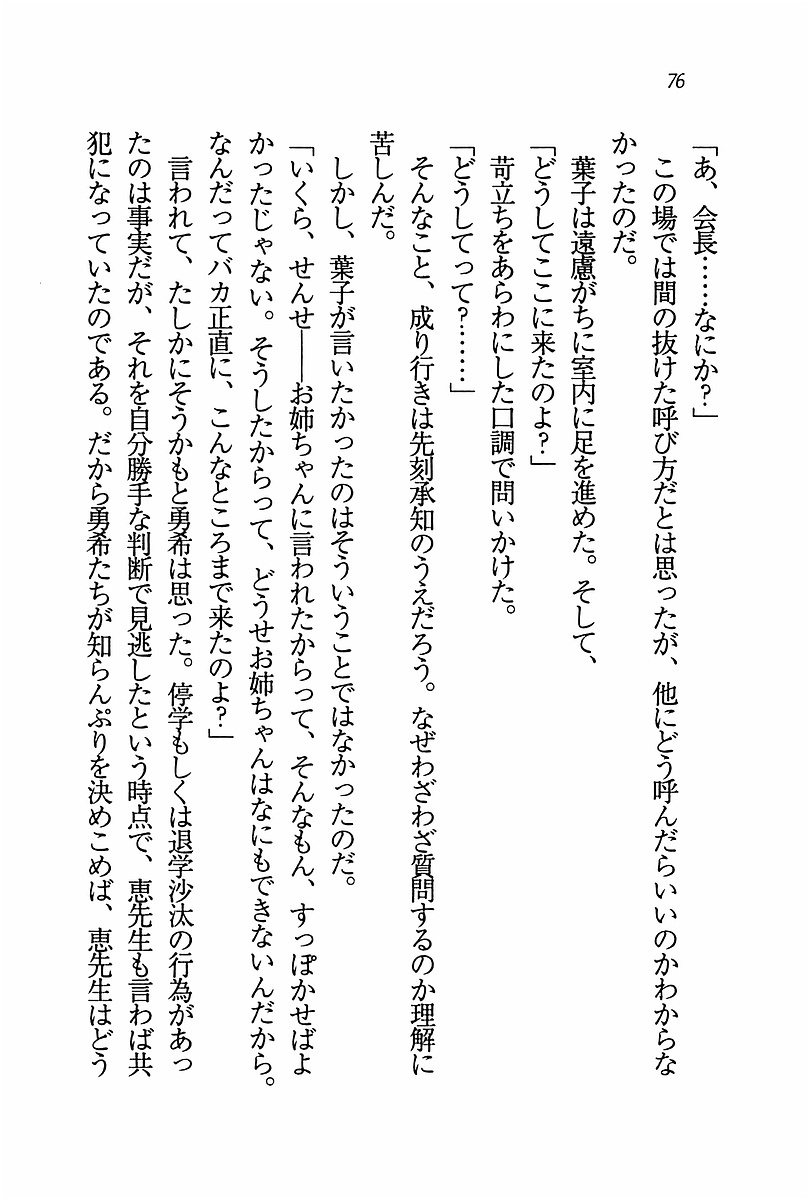 76
「あ、会長……なにか？」
　この場では間の抜けた呼び方だとは思ったが、他にどう呼んだらいいのかわからな
かったのだ。
　葉子は遠慮がちに室内に足を進めた。そして、
「どうしてここに来たのよ？」
　苛立ちをあらわにした口調で問いかけた。
「どうしてって？……」
　そんなこと、成り行きは先刻承知のうえだろう。なぜわざわざ質問するのか理解に
苦しんだ。
　しかし、葉子が言いたかったのはそういうことではなかったのだ。
「いくら、せんせ――お姉ちゃんに言われたからって、そんなもん、すっぽかせばよ
かったじゃない。そうしたからって、どうせお姉ちゃんはなにもできないんだから。
なんだってバカ正直に、こんなところまで来たのよ？」
　言われて、たしかにそうかもと勇希は思った。停学もしくは退学沙汰の行為があっ
たのは事実だが、それを自分勝手な判断で見逃したという時点で、恵先生も言わば共
犯になっていたのである。だから勇希たちが知らんぷりを決めこめば、恵先生はどう